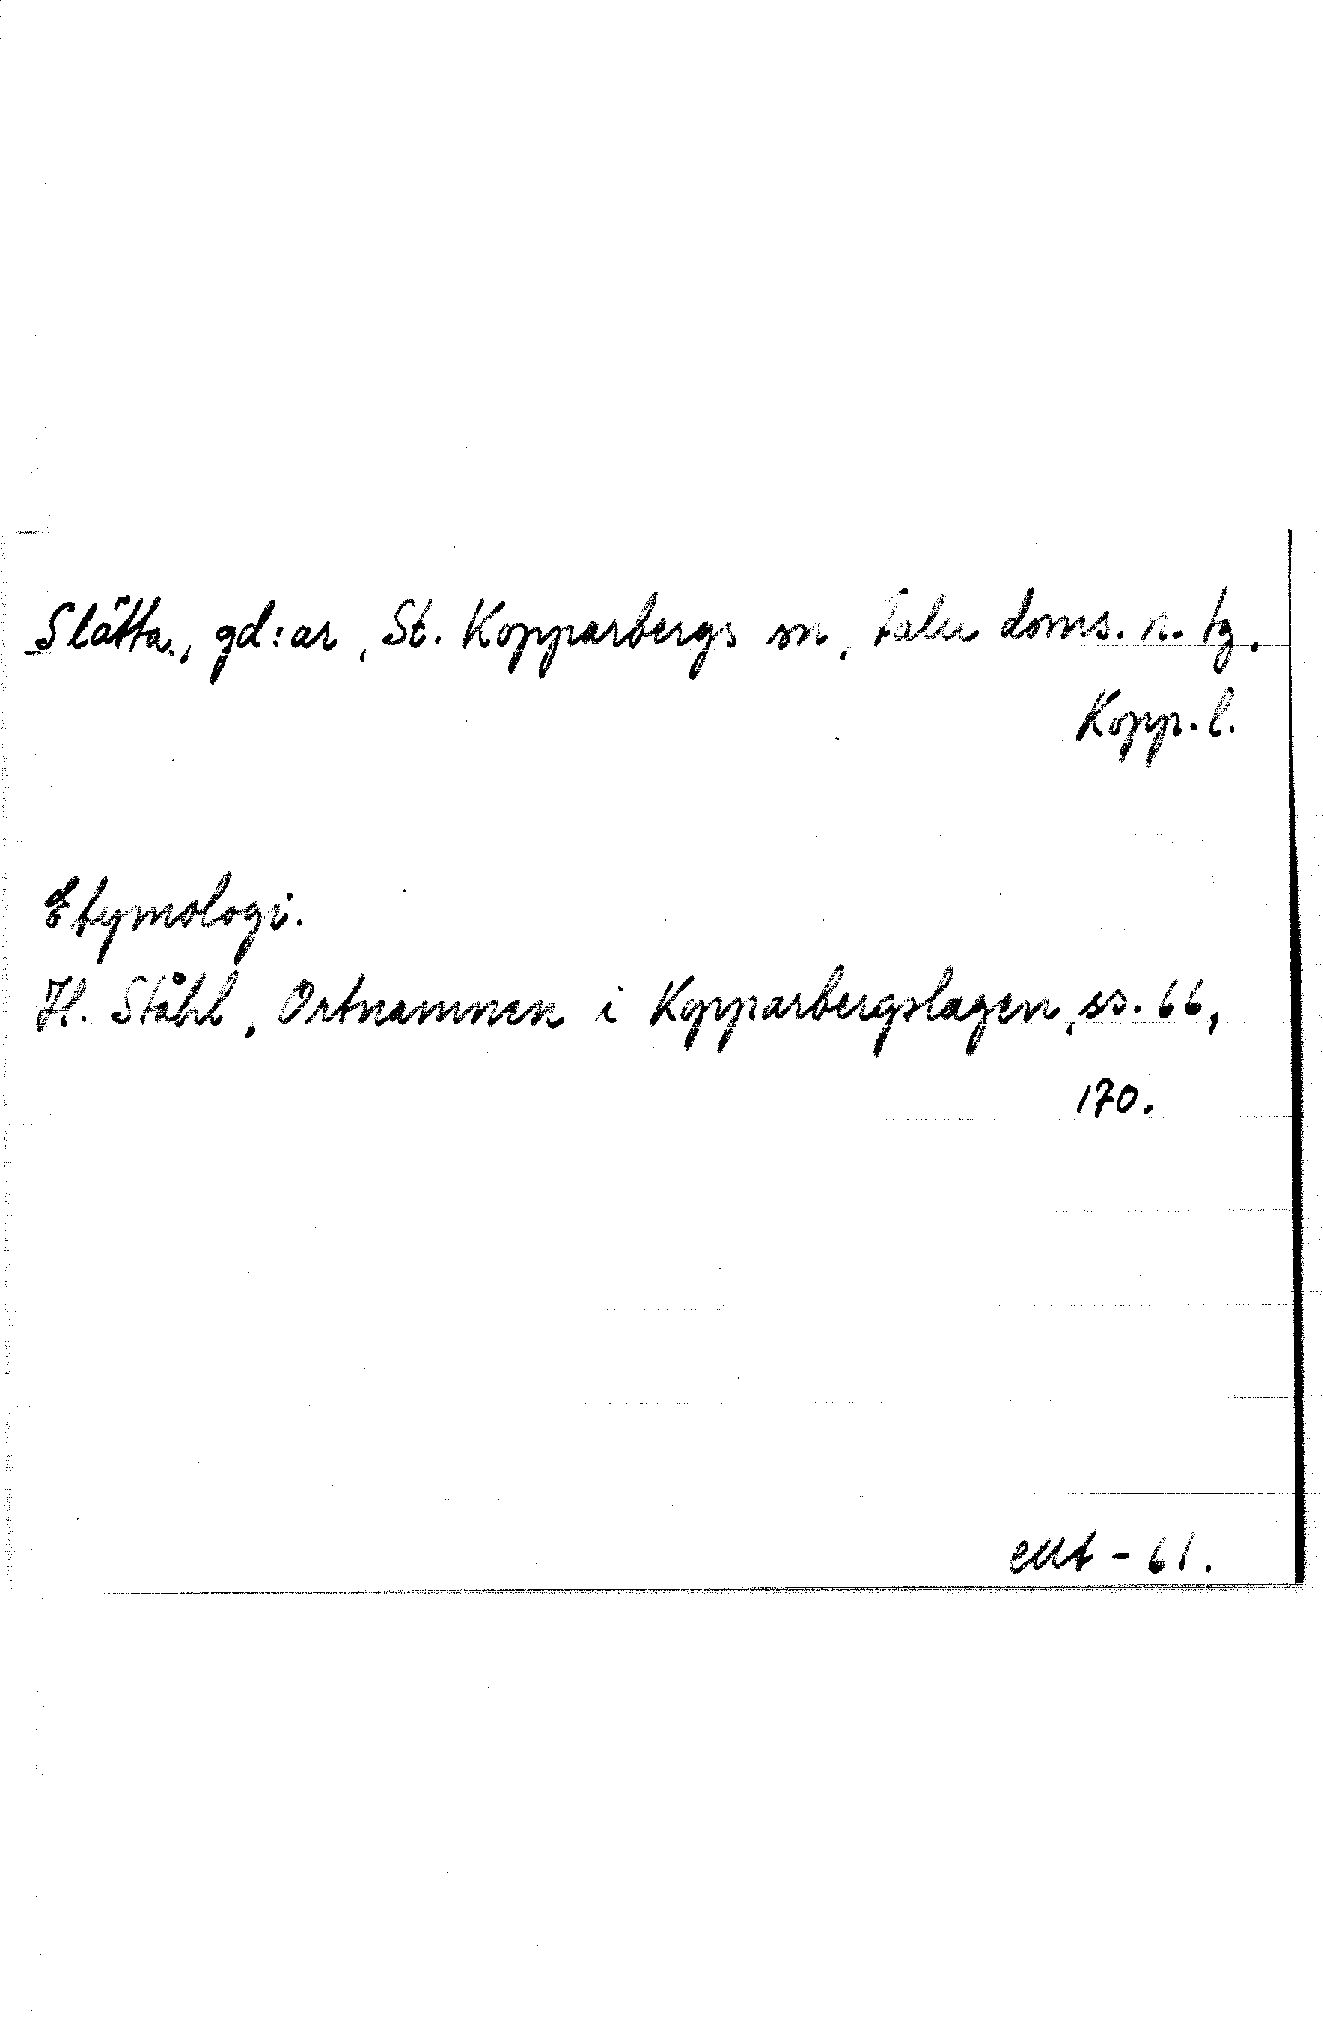 Slätta, gd:ar, St. Kopparbergs sn, Falu doms. n. tg.
Kopp. l.
Etymologi.
H. Ståhl, Ortnamnen i Kopparbergslagen, ss. 66,
170.
- 61.